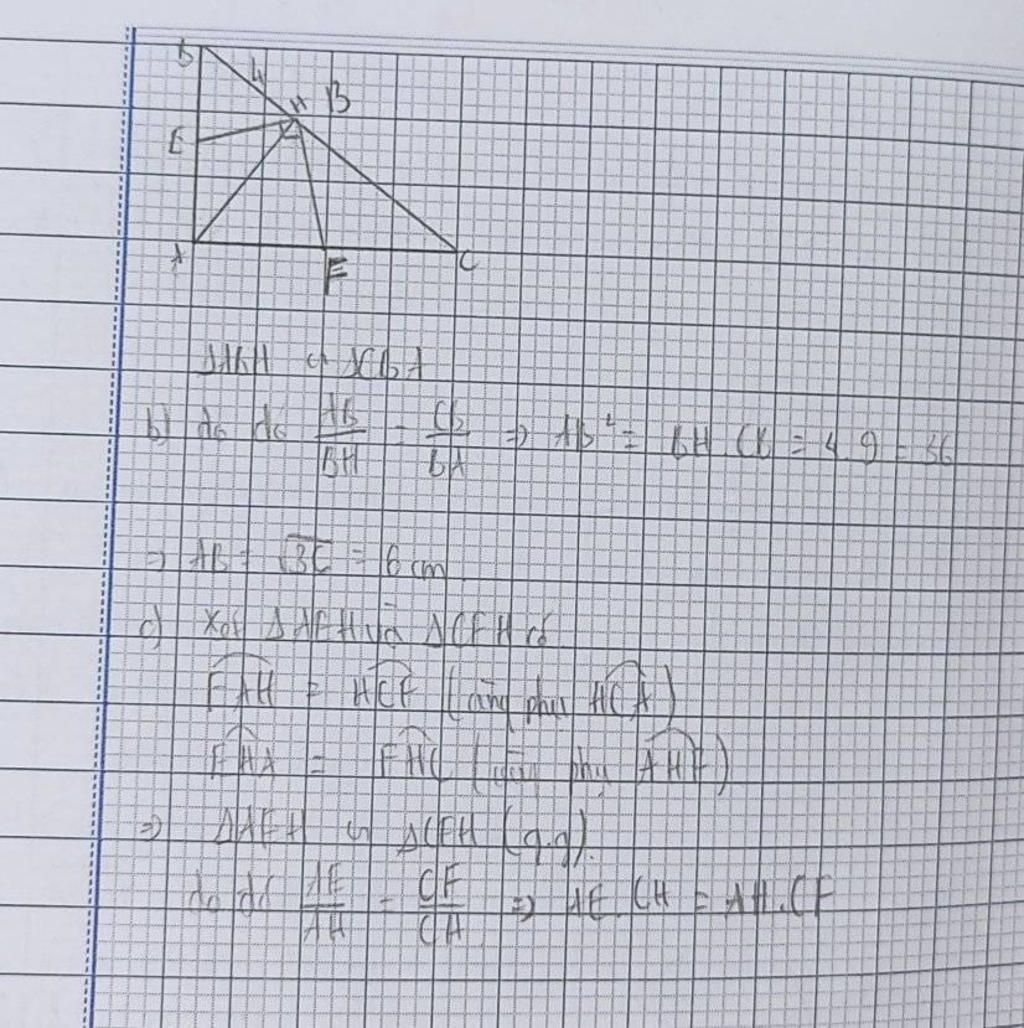 B
4
H B
E
A
F
C
ΔABH ∽ ΔCBA
b) do đó AB/BH = CB/BA => AB² = BH.CB = 4.9 = 36
=> AB = √36 = 6 cm
c) Xét ΔAEH và ΔCFH có
EAH = HCF (cùng phụ HCA)
EHA = FHC (cùng phụ AHF)
=> ΔAEH ∽ ΔCFH (g.g).
do đó AE/AH = CF/CH => AE.CH = AH.CF